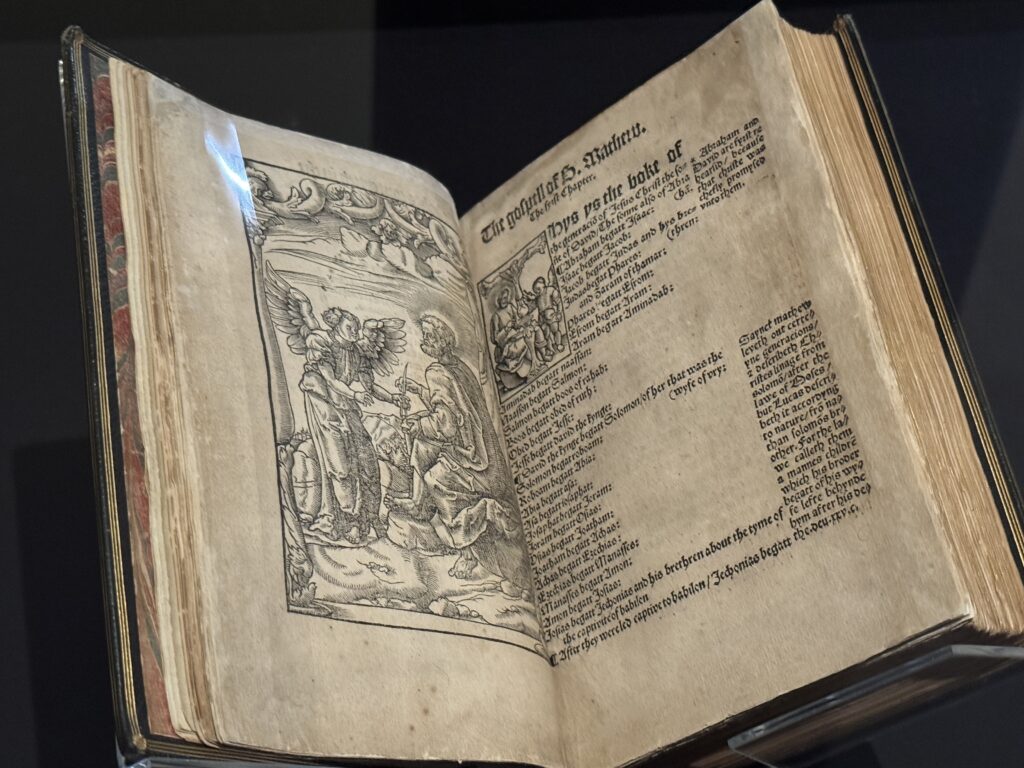 The gospell of S. Mathew.
The fyrst Chapter.
Hys ys the boke of
the generacion of Jesus Christ the sone
of David / The sonne also of Abra
Abraham begatt Isaac:
Isaac begatt Jacob:
Jacob begatt Judas and hys bre
(thren:
Judas begatt Phares:
and Zaram of thamar:
Phares begatt Esrom:
Esrom begatt Aram:
Aram begatt Aminadab:
Aminadab begatt naasson:
Naasson begatt Salmon:
Salmon begatt boos of rahab:
Boos begatt obed of ruth:
Obed begatt Jesse:
Jesse begatt david the kynge:
David the kynge begatt Solomon / of her that was the
(wyfe of vry:
Solomon begat roboam:
Roboam begatt Abia:
Abia begatt asa:
Asa begatt iosaphat:
Iosaphat begatt Joram:
Joram begatt Osias:
Osias begatt Joatham:
Joatham begatt Achas:
Achas begatt Ezechias:
Ezechias begatt Manasses:
Manasses begatt Amon:
Amon begatt Josias:
Josias begatt Jechonias and his brethren about the tyme of
the captivite of babilon
After they wereled captive to babilon / Jechonias begatt
Abraham and
David are fyrst re
hearsid / because
that christe was
chefly promysed
vnto them.
Saynct mathew
leveth out certe
yne generacions /
z describeth Ch
ristes linage from
solomo / after the
lawe of Moses /
but Lucas descri
beth it according
to nature / fro na
than solomos bro
ther. For the la
we calleth them
a mannes childre
which his broder
begatt of his wy
fe lefte behynde
hym after his de
the. Deu. xxv. c.